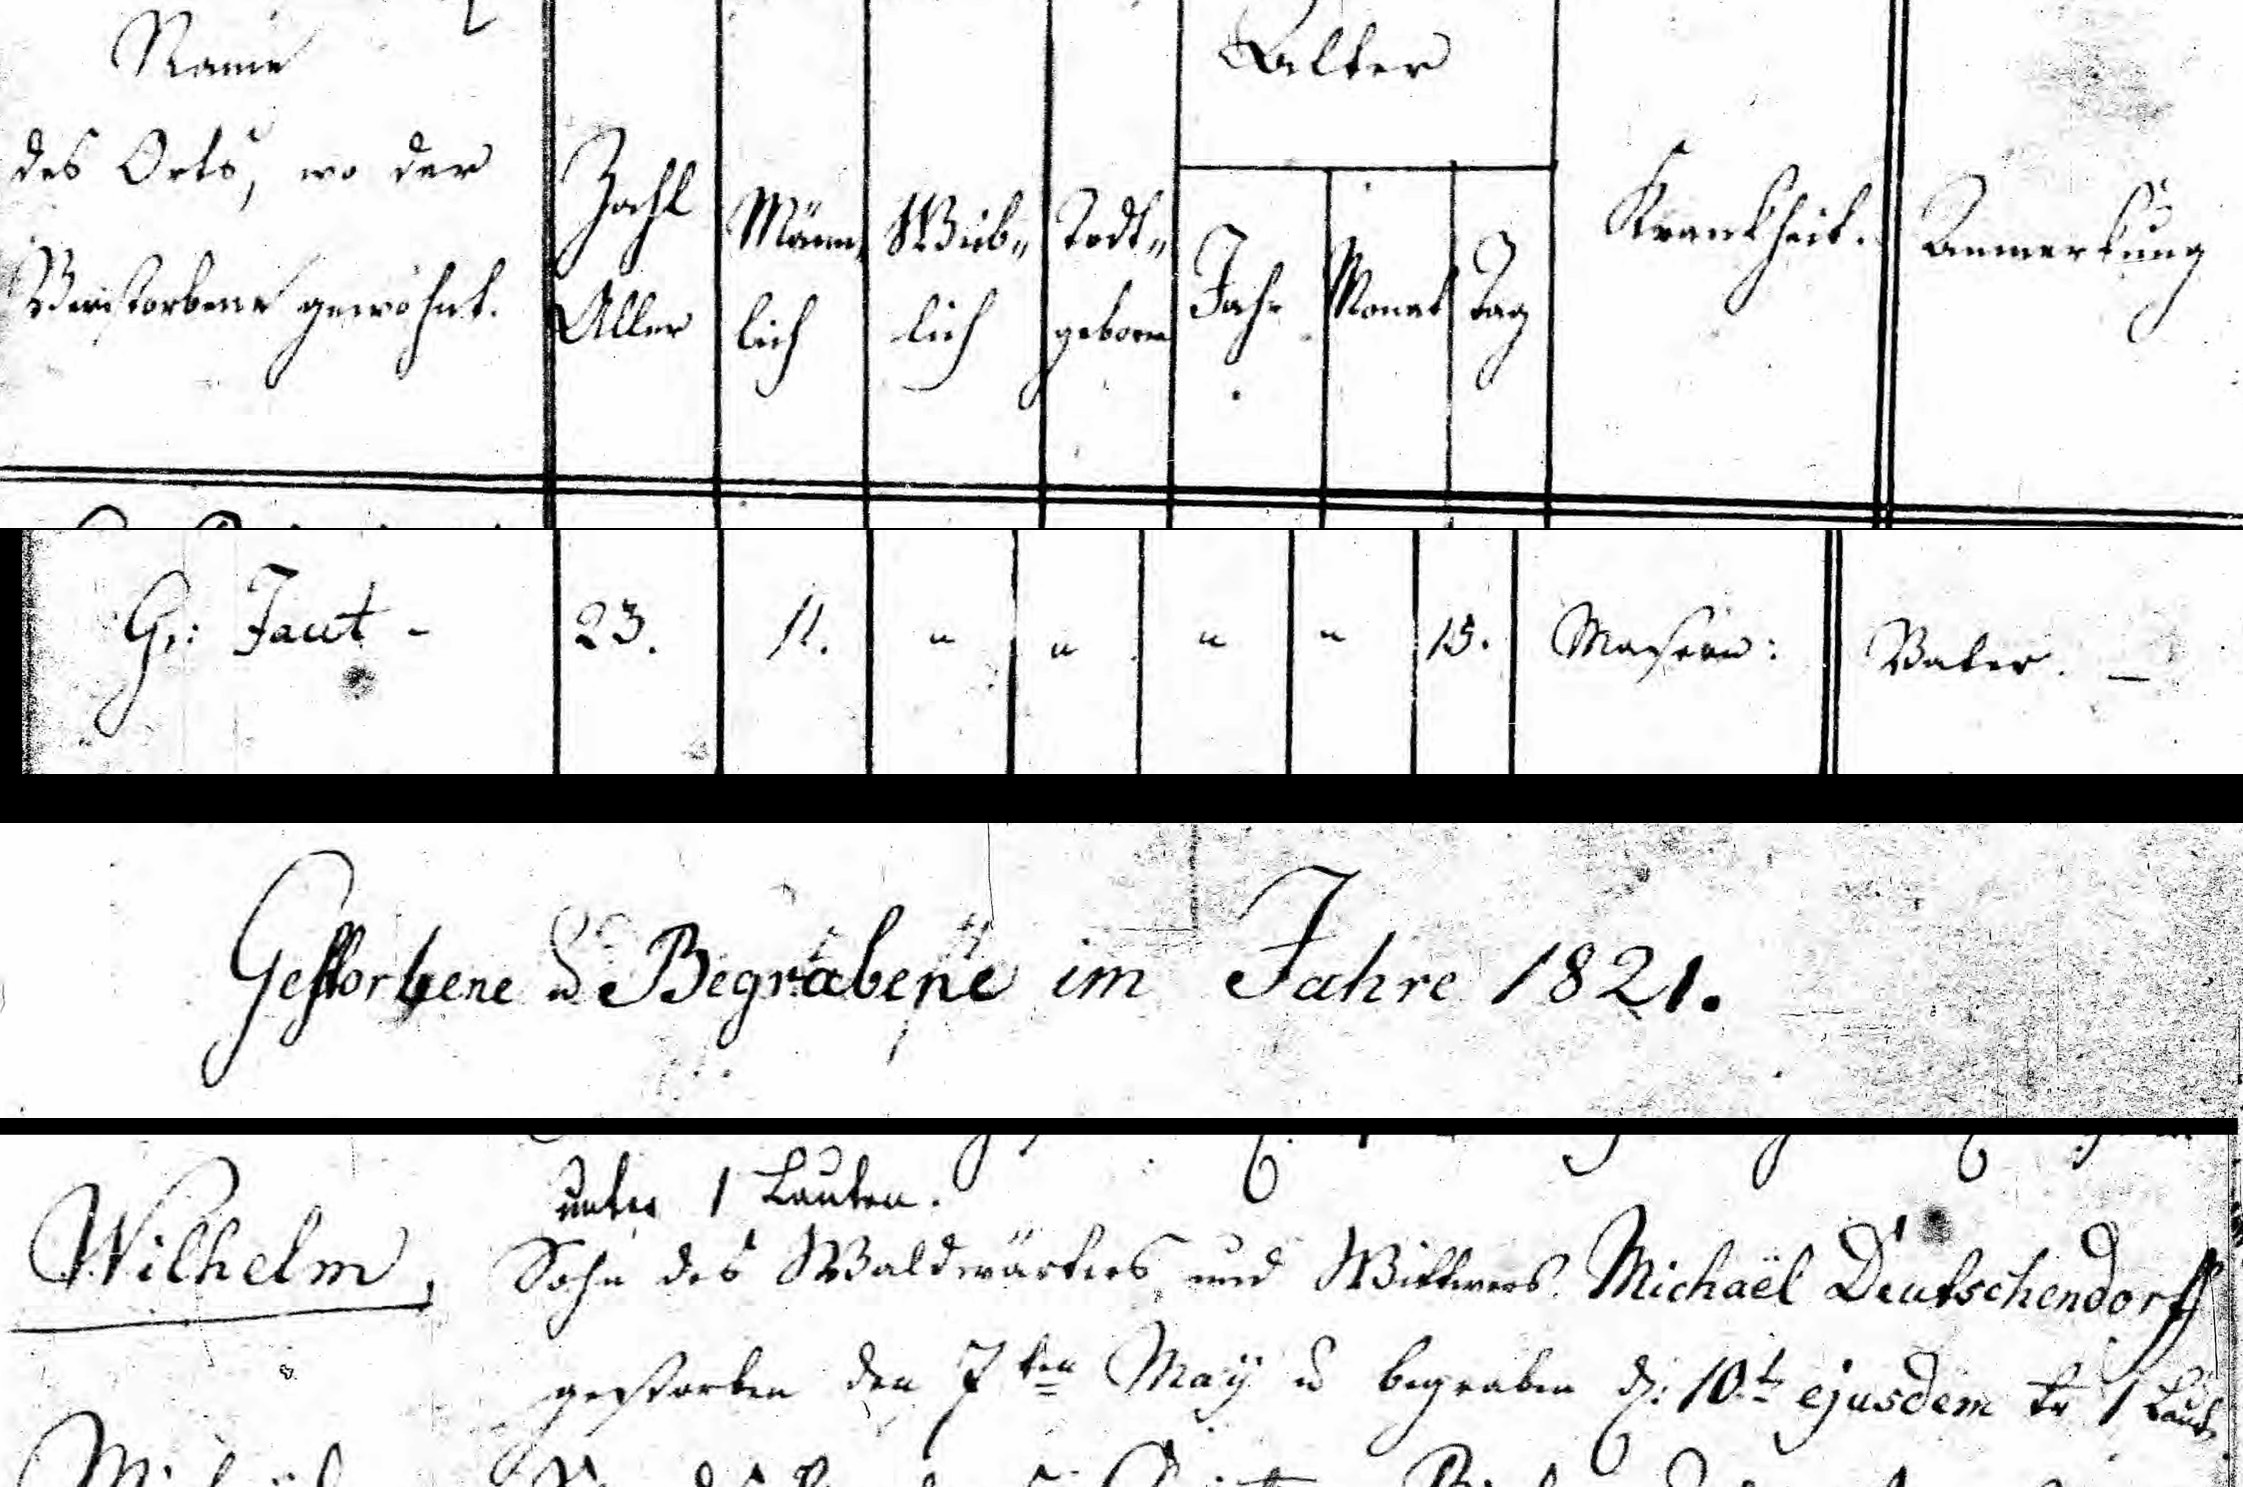 Name
des Orts, wo der
Verstorbene gewohnt.
Zahl
Aller
Männ„
lich
Weib„
lich
Todt„
geboren
Alter
Jahr
Monat
Tag
Krankheit.
Anmerkung
Gr: Jaut -
23.
11.
"
"
"
"
15.
Masern:
Vater. —
Gestorbene u Begrabene im Jahre 1821.
unter 1 Lauten.
Wilhelm,
Sohn des Waldwärters und Wittwers Michaël Deutschendorff
gestorben den 7ten May u begraben d: 10.t ejusdem 1 Laut.